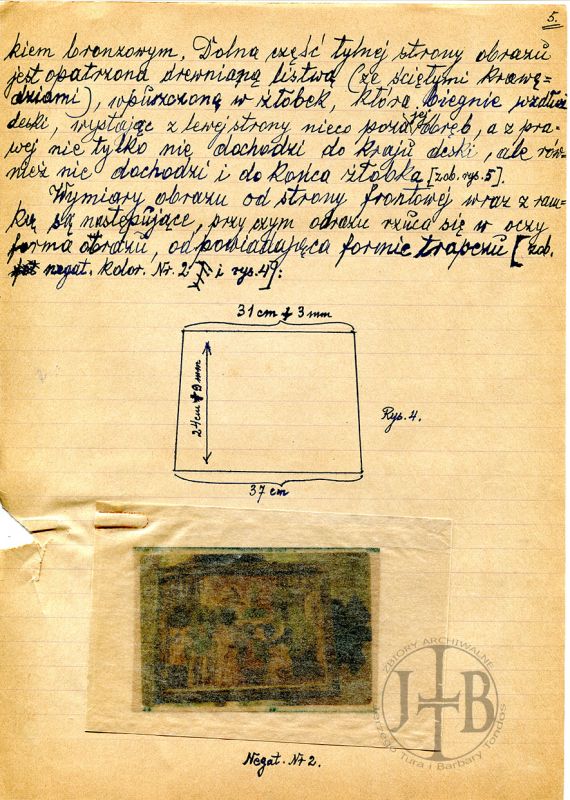 5.
kiem bronzowym. Dolna część tylnej strony obrazu
jest opatrzona drewnianą listwą (ze ściętymi krawę=
dziami), wpuszczoną w żłobek, która biegnie wzdłuż
deski, wystając z lewej strony nieco poza jej obręb, a z pra=
wej nie tylko nie dochodzi do kraju deski, ale rów=
nież nie dochodzi i do końca żłobka [zob. rys. 5].
Wymiary obrazu od strony frontowej wraz z ram=
ką są następujące, przy czym odrazu rzuca się w oczy
forma obrazu, odpowiadająca formie trapezu [zob.
negat. kolor. Nr. 2 i rys. 4]:
31 cm 3 mm
24 cm 9 mm
Rys. 4.
37 cm
ZBIORY ARCHIWALNE
J T B
Jerzego Tura i Barbary Tondos
Negat. Nr 2.